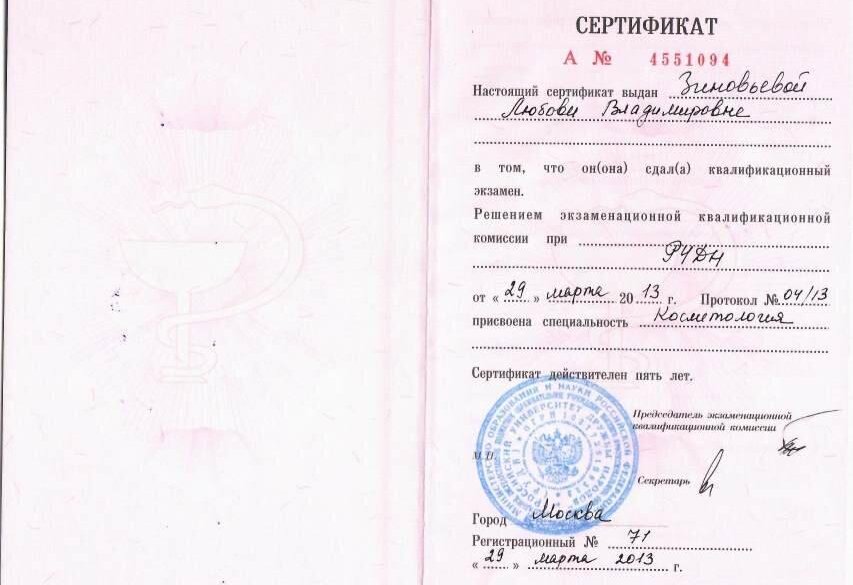 СЕРТИФИКАТ
А № 4551094
Настоящий сертификат выдан Зиновьевой
Любови Владимировне
в том, что он(она) сдал(а) квалификационный
экзамен.
Решением экзаменационной квалификационной
комиссии при
РУДН
от « 29 » марта 20 13 г. Протокол № 04/13
присвоена специальность Косметология
Сертификат действителен пять лет.
Председатель экзаменационной
квалификационной комиссии
М.П.
Секретарь
Город Москва
Регистрационный № 71
« 29 » марта 2013 г.